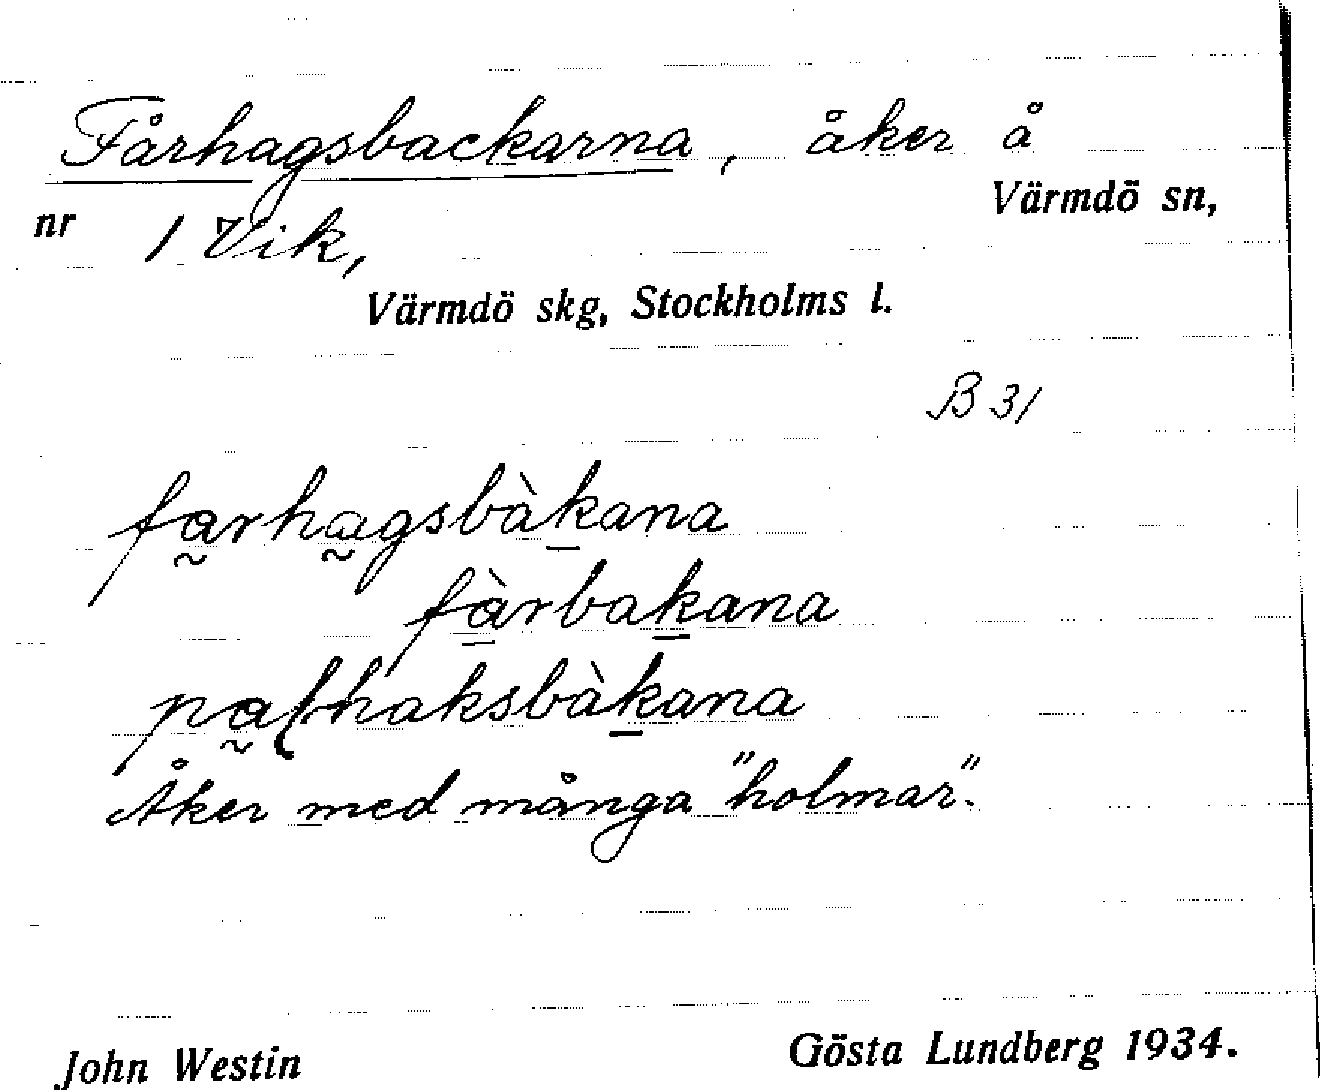 Fårhagsbackarna, åker å
Värmdö sn,
nr 1 Vik,
Värmdö skg, Stockholms l.
B 31
fa̰rha̰gsbàḵana
fà̱rbaḵana
Åker med många "holmar".
John Westin
Gösta Lundberg 1934.